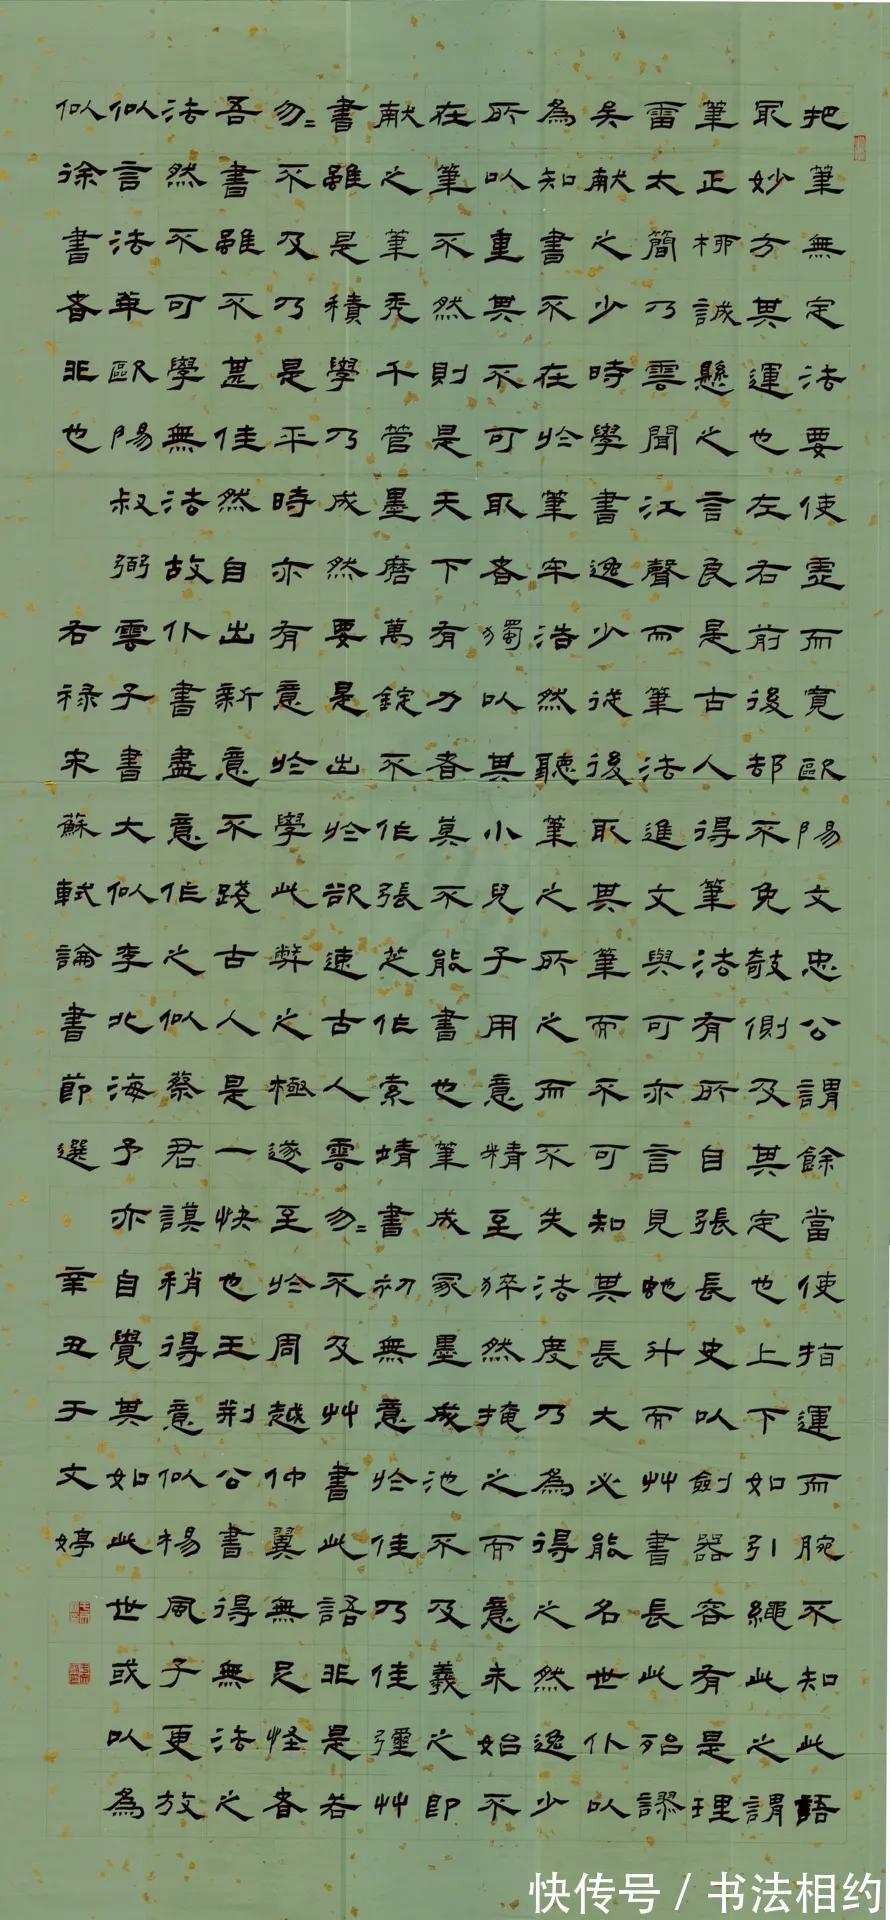 把筆無定法要使虛而寬歐陽文忠公謂餘當使指運而腕不知此語
最妙方其運也左右前後却不免欹側及其定也上下如引繩此之謂
筆正柳誠懸之言良是古人得筆法有所自張長史以劍器容有是理
雷太簡乃雲聞江聲而筆法進文與可亦言見蛇斗而艸書長此殆謬
吳献之少時學書逸少從後取其筆而不可知其長大必能名世仆以
為知書不在於筆牢浩然聽筆之所之而不失法度乃為得之然逸少
所以重其不可取者獨以其小兒子用意精至猝然掩之而意未始不
在筆不然則是天下有力者莫不能書也筆成冢墨成池不及羲之即
献之筆禿千管墨磨萬錠不作張芝作索靖書初無意於佳乃佳彊艸
書雖是積學乃成然要是出於欲速古人雲勿〻不及艸書此語非是若
勿〻不及乃是平時亦有意於學此弊之極遂至於周越仲翼無足怪者
吾書雖不甚佳然自出新意不踐古人是一快也王荊公書得無法之
法然不可學無法故仆書盡意作之似蔡君謨稍得意似楊風子更放
似言法華歐陽叔弼雲子書大似李北海予亦自覺其如此世或以為
似徐書者非也 右祿宋蘇軾論書節選 辛丑于文婷
快传号 / 书法相约